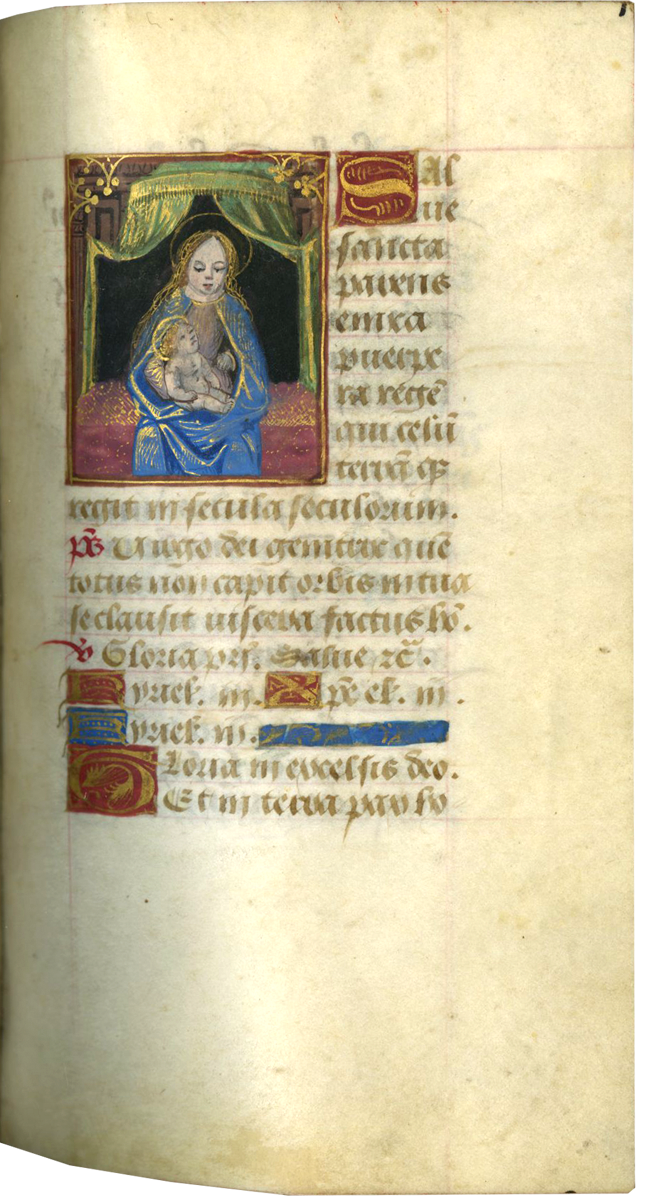 Sal
ue
sancta
parens
enixa
puerpe
ra regē
qui celū
terrā qȝ
regit in secula seculorum.
p̄s Uirgo dei genitrix quē
totus non capit orbis in tua
se clausit uiscera factus hō.
v̄ Gloria pri. Salue rc̄.
Kyriel. iij. Xp̄e el. iij.
Kyriel. iij.
Gloria in excelsis deo.
Et in terra pax ho